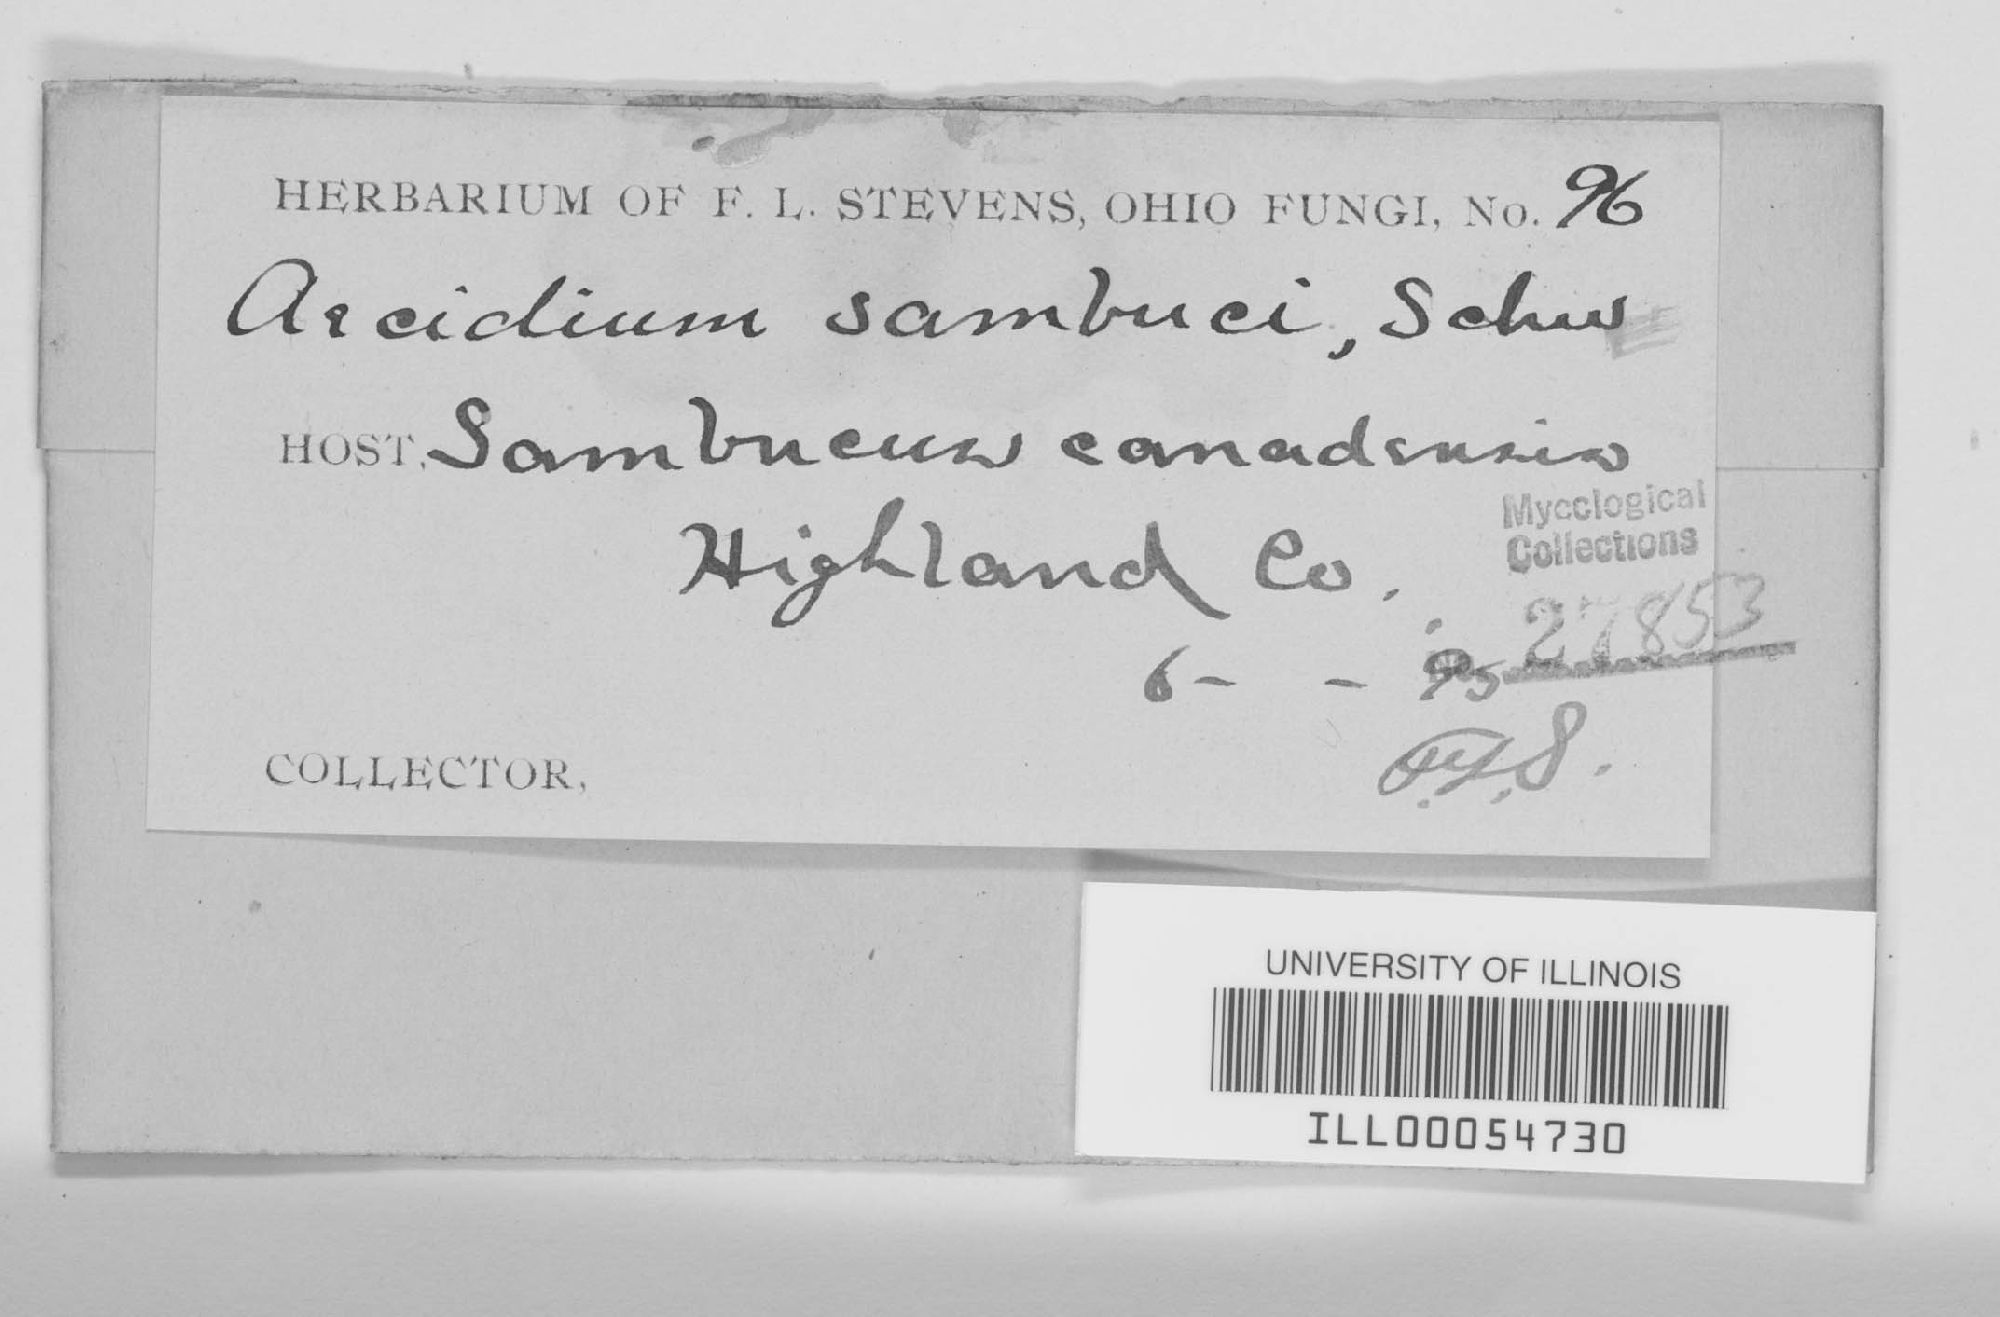 HERBARIUM OF F. L. STEVENS, OHIO FUNGI, No. 96
Aecidium sambuci, Schw
HOST, Sambucus canadensis
Highland Co.
Mycological
Collections
27853
6 - - 95
COLLECTOR,
UNIVERSITY OF ILLINOIS
ILL00054730